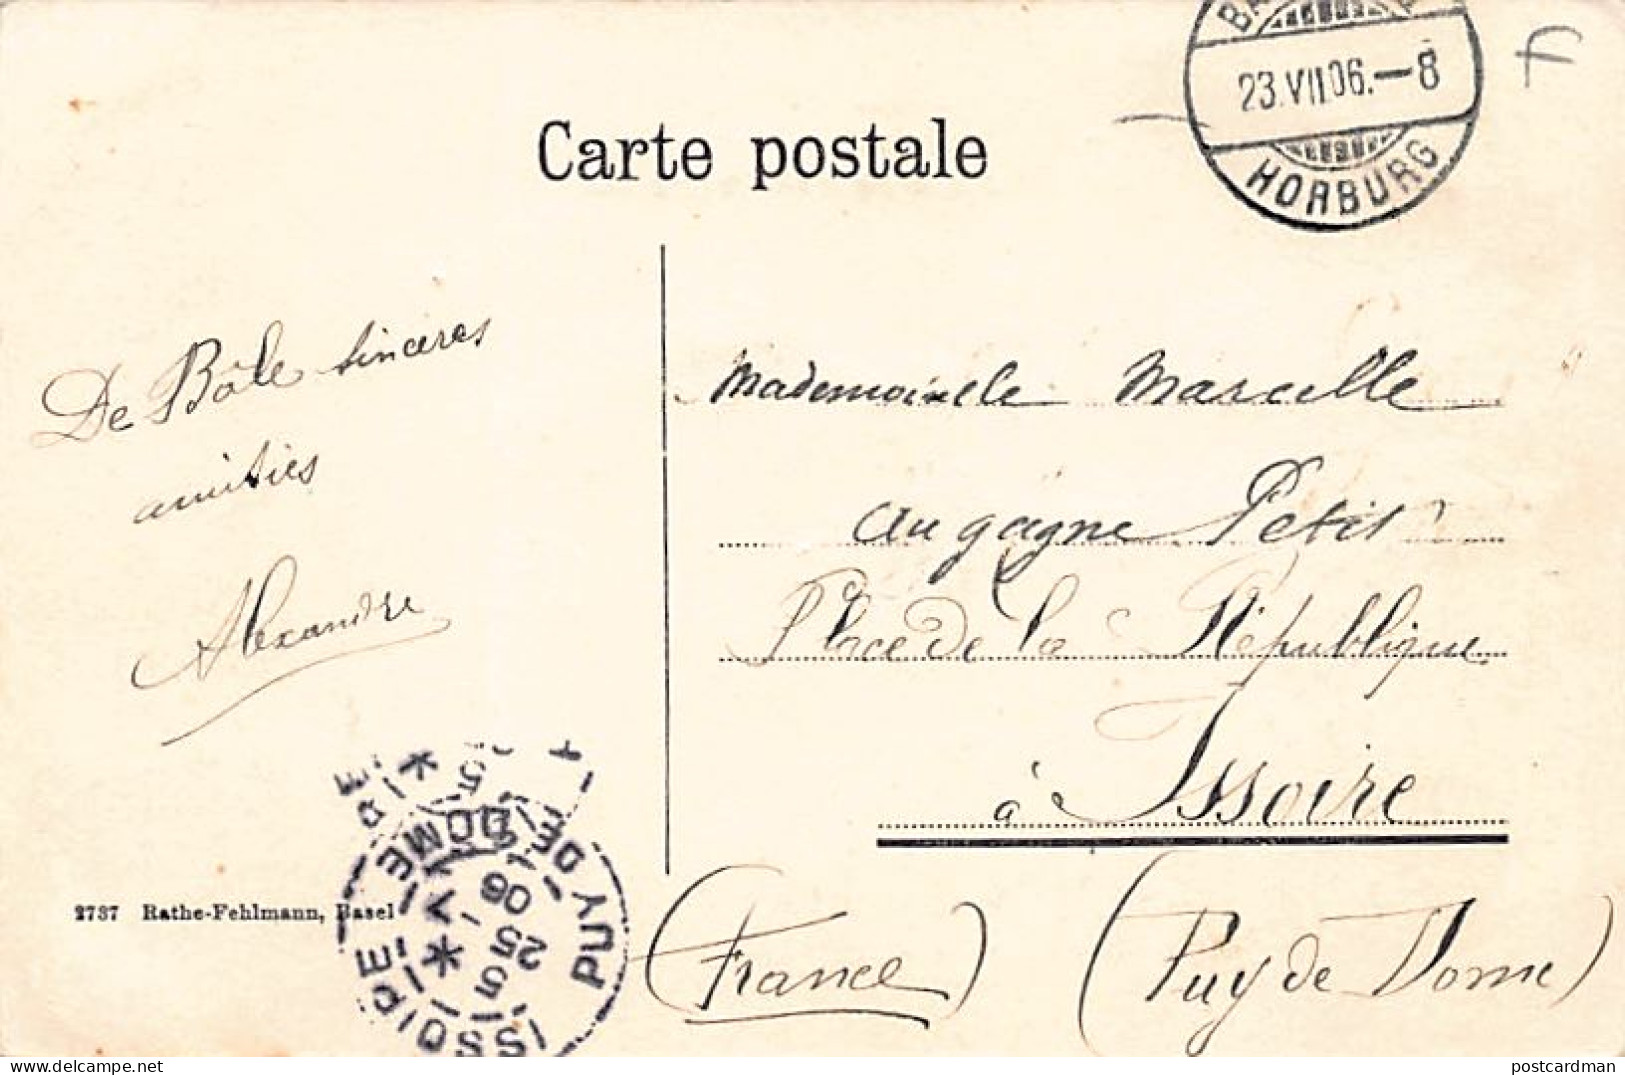 Carte postale
23.VII.06.—8
HORBURG
De Bâle sincères
amitiés
Alexandre
Mademoiselle Marcelle
au gagne Petit
Place de la République
à Issoire
(France) (Puy de Dome)
2737 Rathe-Fehlmann, Basel
ISSOIRE
PUY DE DOME
25
06
postcardman